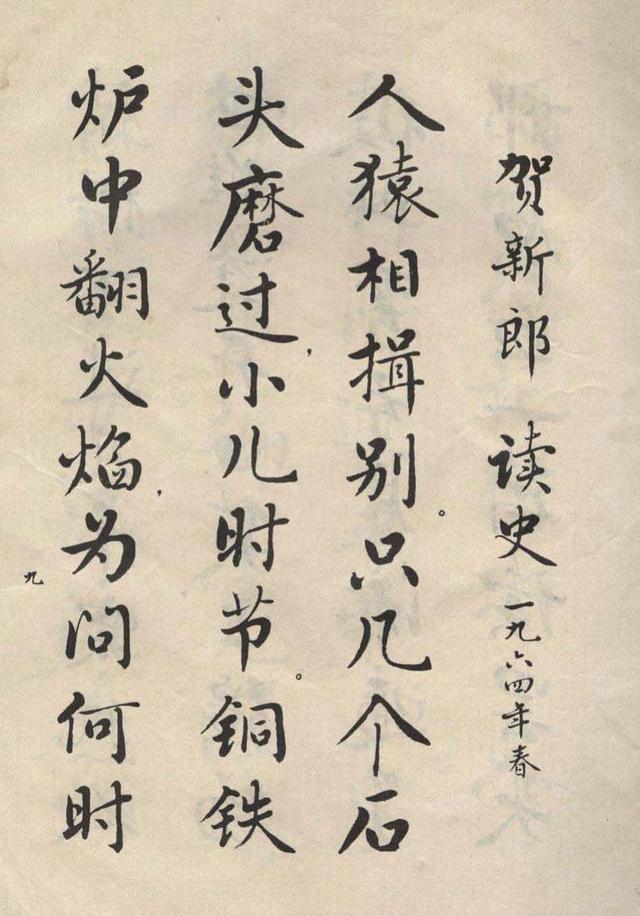 贺新郎 读史 一九六四年春
人猿相揖别。只几个石
头磨过，小儿时节。铜铁
炉中翻火焰，为问何时
九